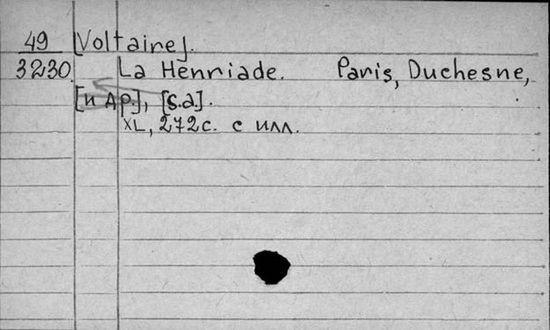 49 [Voltaire].
3230. La Henriade. Paris, Duchesne,
[и др.], [s.a].
XL, 272с. с илл.